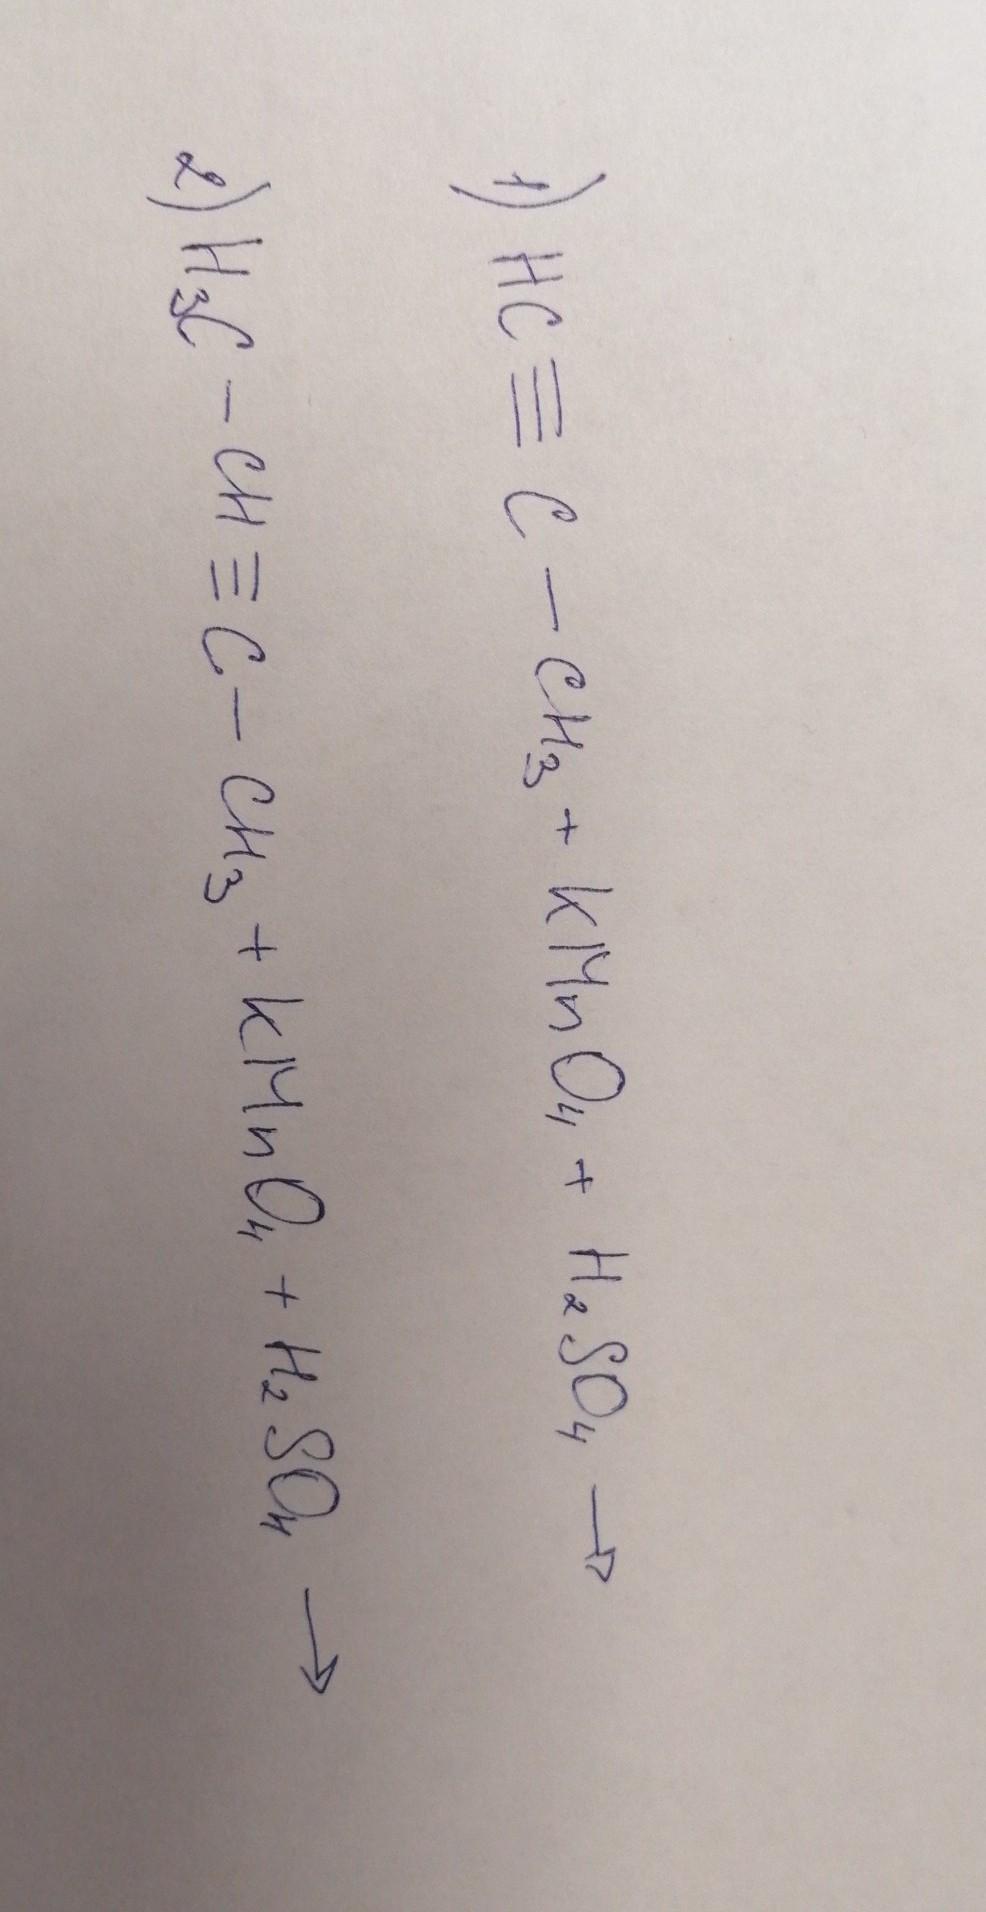 1) HC ≡ C − CH₃ + KMnO₄ + H₂SO₄ →
2) H₃C − CH ≡ C − CH₃ + KMnO₄ + H₂SO₄ →